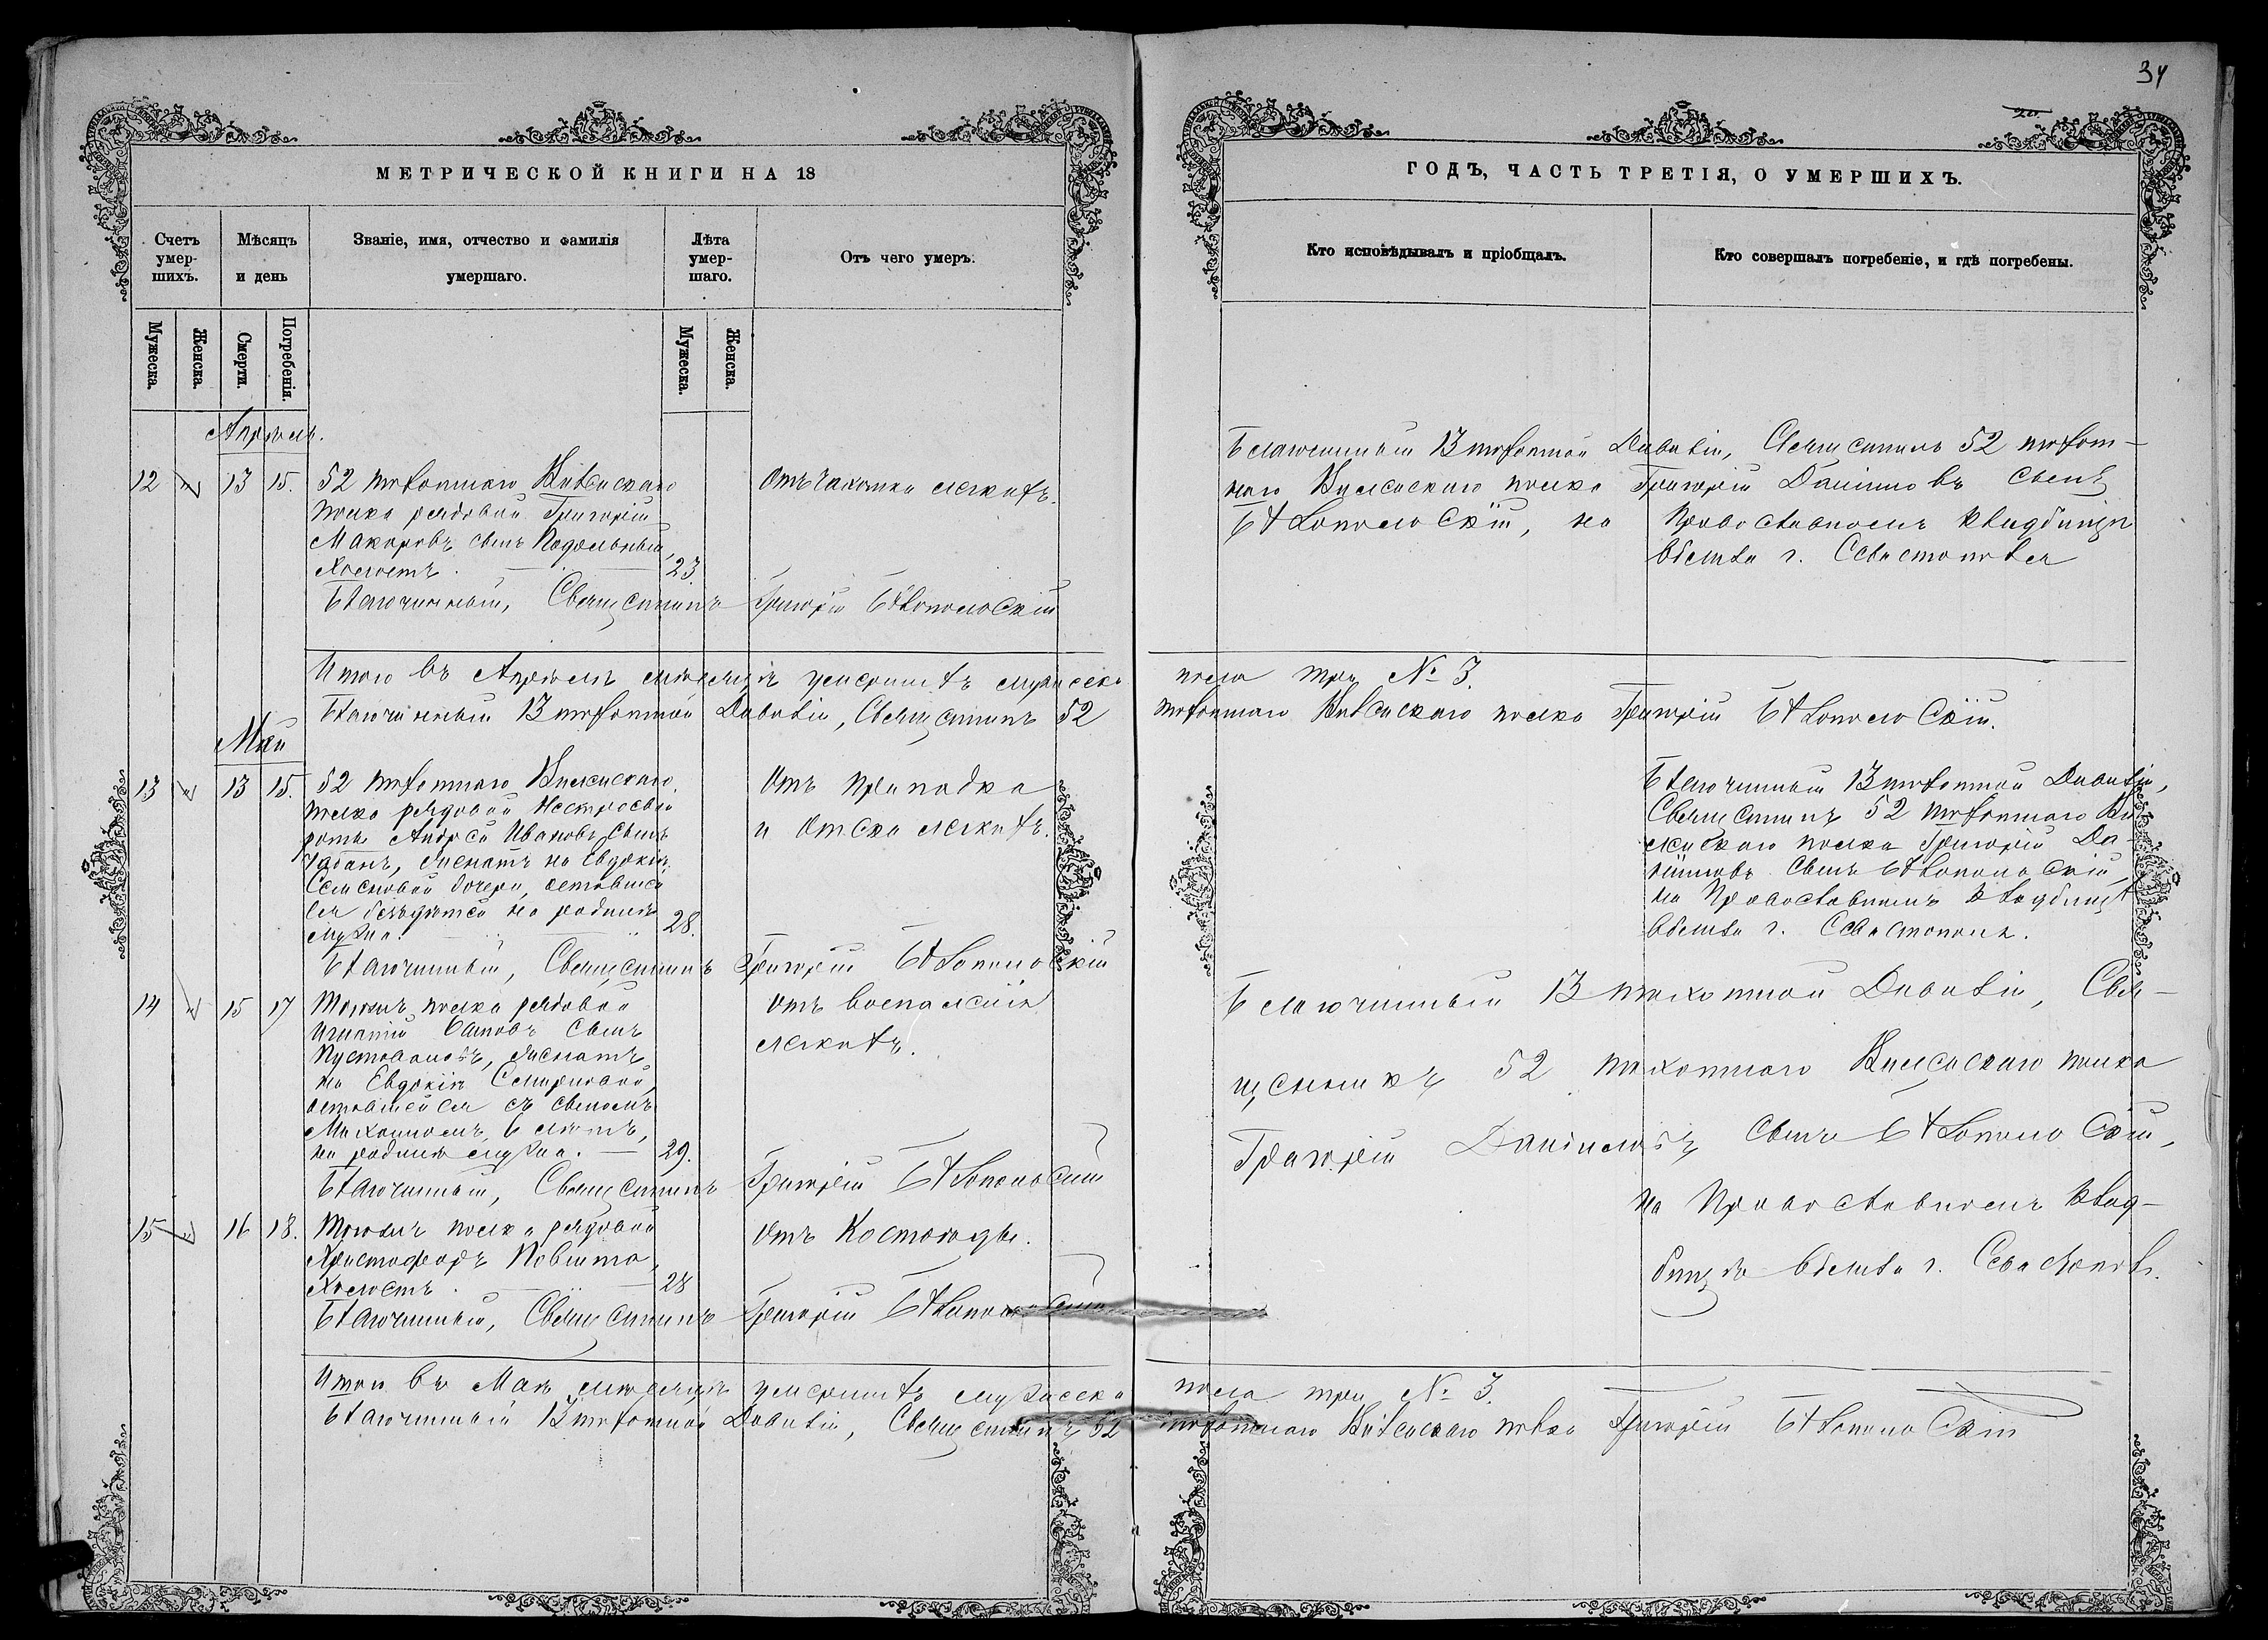 34
МЕТРИЧЕСКОЙ КНИГИ НА 18
ГОДЪ, ЧАСТЬ ТРЕТІЯ, О УМЕРШИХЪ.
Счетъ умер-шихъ.
Мѣсяцъ и день
Званіе, имя, отчество и фамилія умершаго.
Лѣта умер-шаго.
Отъ чего умеръ.
Кто исповѣдывалъ и пріобщалъ.
Кто совершалъ погребеніе, и гдѣ погребены.
Мужеска.
Женска.
Смерти.
Погребенія.
Мужеска.
Женска.
Апрѣль.
12 13 15.
52 пѣхотнаго Виленскаго
полка рядовой Григорій
Макаровъ сынъ Подольный,
холостъ. 23.
Отъ чахотки легкихъ.
Благочинный, Священникъ Григорій Бѣлопольскій
Благочинный 13 пѣхотной Дивизіи, Священникъ 52 пѣхот-
наго Виленскаго полка Григорій Даніиловъ сынъ
Бѣлопольскій, на Православномъ кладбищѣ
вблизи г. Севастополя
Итого въ Апрѣлѣ мѣсяцѣ умершихъ мужеска пола три № 3.
Благочинный 13 пѣхотной Дивизіи, Священникъ 52 пѣхотнаго Виленскаго полка Григорій Бѣлопольскій.
Май
13 13 15.
52 пѣхотнаго Виленскаго
полка рядовой Нестроевой
роты Андрей Ивановъ сынъ
Чабанъ, женатъ на Евдокіи
Семеновой дочери, оставшей
ся бездѣтной на родинѣ
мужа. 28.
Отъ припадка
и отека легкихъ.
Благочинный, Священникъ Григорій Бѣлопольскій
Благочинный 13 пѣхотной Дивизіи,
Священникъ 52 пѣхотнаго Ви-
ленскаго полка Григорій Да-
ніиловъ сынъ Бѣлопольскій,
на Православномъ кладбищѣ
вблизи г. Севастополя.
14 15 17
Тогожъ полка рядовой
Игнатій сынъ
женатъ
на Евдокіи
оставшейся съ сыномъ
6 лѣтъ,
на родинѣ мужа. 29.
Отъ воспаленія
легкихъ.
Благочинный, Священникъ Григорій Бѣлопольскій
Благочинный 13 пѣхотной Дивизіи, Свя-
щенникъ 52 пѣхотнаго Виленскаго полка
Григорій Даніиловъ сынъ Бѣлопольскій,
на Православномъ клад-
бищѣ вблизи г. Севастополя.
15 16 18.
Тогожъ полка рядовой
Христофоръ
холостъ. 28
Отъ Костоѣды.
Благочинный, Священникъ Григорій Бѣлопольскій
Итого въ Маѣ мѣсяцѣ умершихъ мужеска пола три № 3.
Благочинный 13 пѣхотной Дивизіи, Священникъ 52 пѣхотнаго Виленскаго полка Григорій Бѣлопольскій